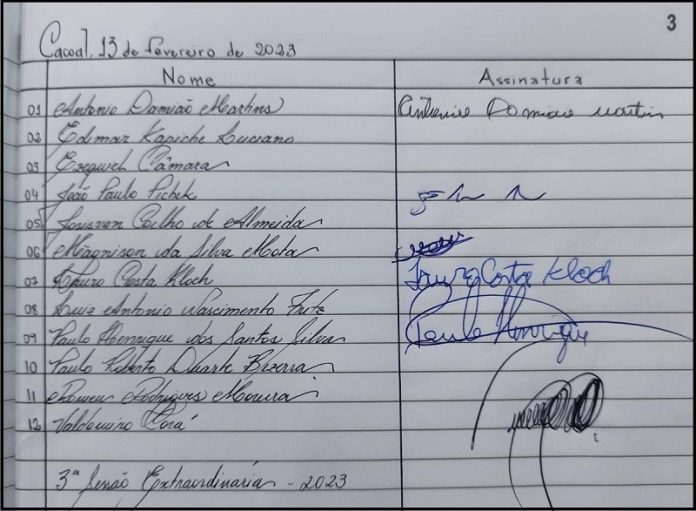 3
Cacoal, 13 de fevereiro de 2023
Nome Assinatura
01 Antonio Damião Martins Antonio Damiao Martins
02 Edimar Kapiche Luciano
03 Ezequiel Câmara
04 João Paulo Pichek
05 Josisvan Coelho de Almeida
06 Magnison da Silva Mota
07 Lauro Costa Kloch Lauro Costa Kloch
08 Luiz Antonio Nascimento Fritz
09 Paulo Henrique dos Santos Silva Paulo Henrique
10 Paulo Roberto Duarte Bezerra
11 Romeu Rodrigues Moreira
12 Valdomiro Corá
3ª Sessão Extraordinária - 2023